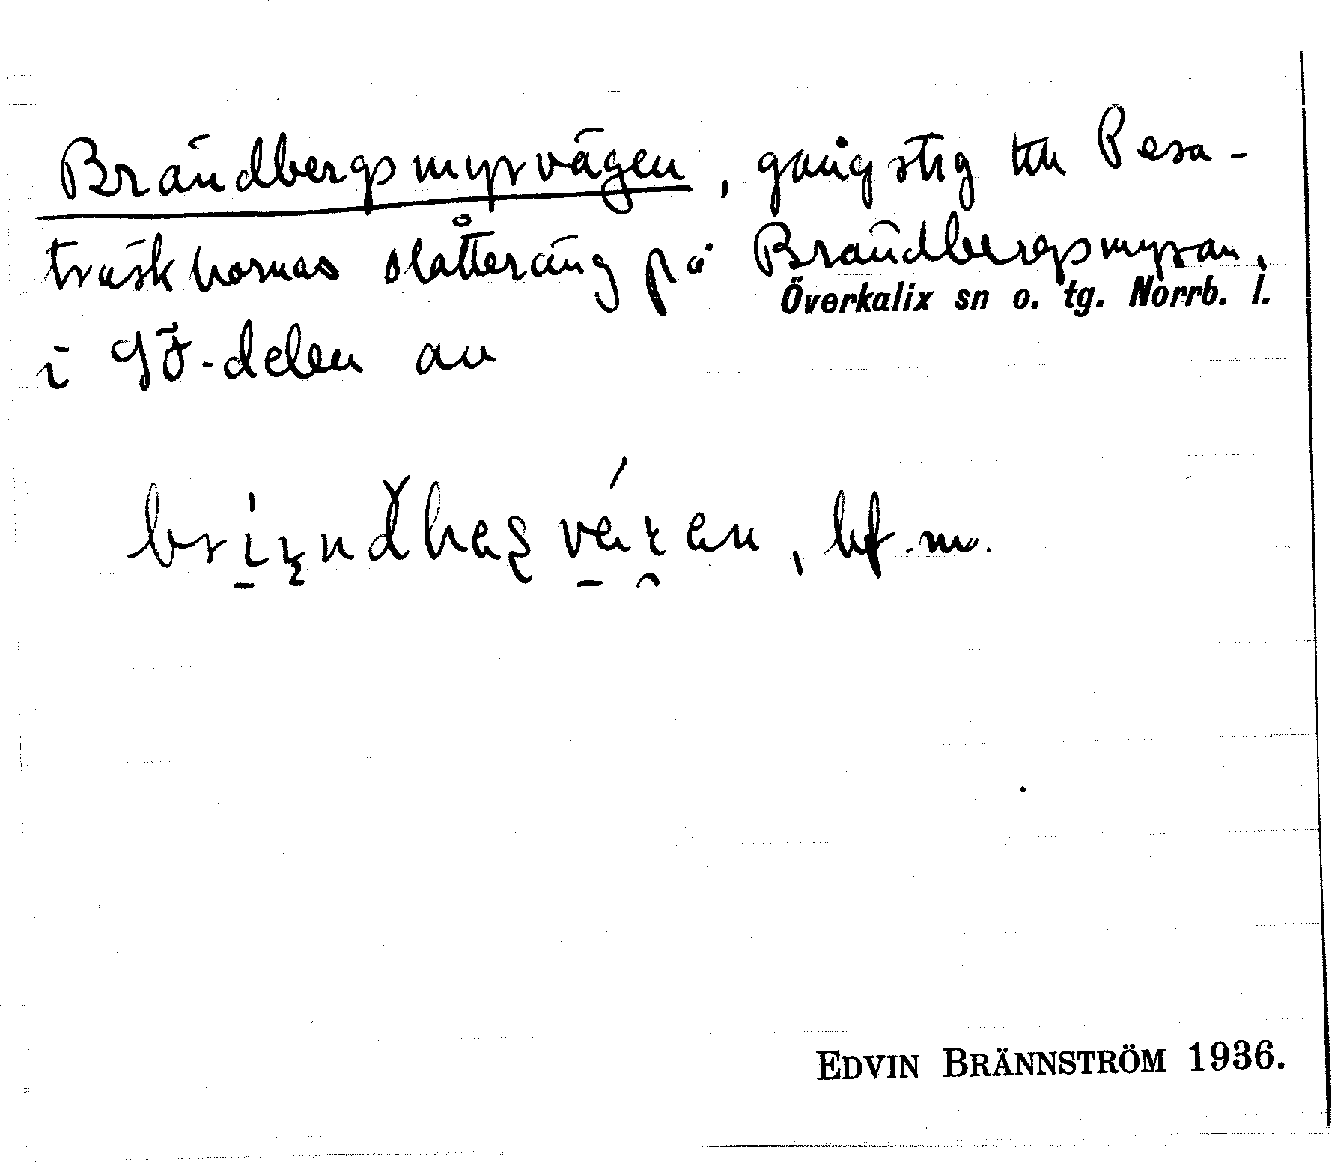 Brändbergsmyrvägen, gångstig till Pesa-
träskbornas slåtteräng på Brändbergsmyran,
i SÖ-delen av
Överkalix sn o. tg. Norrb. l.
bf. m.
EDVIN BRÄNNSTRÖM 1936.